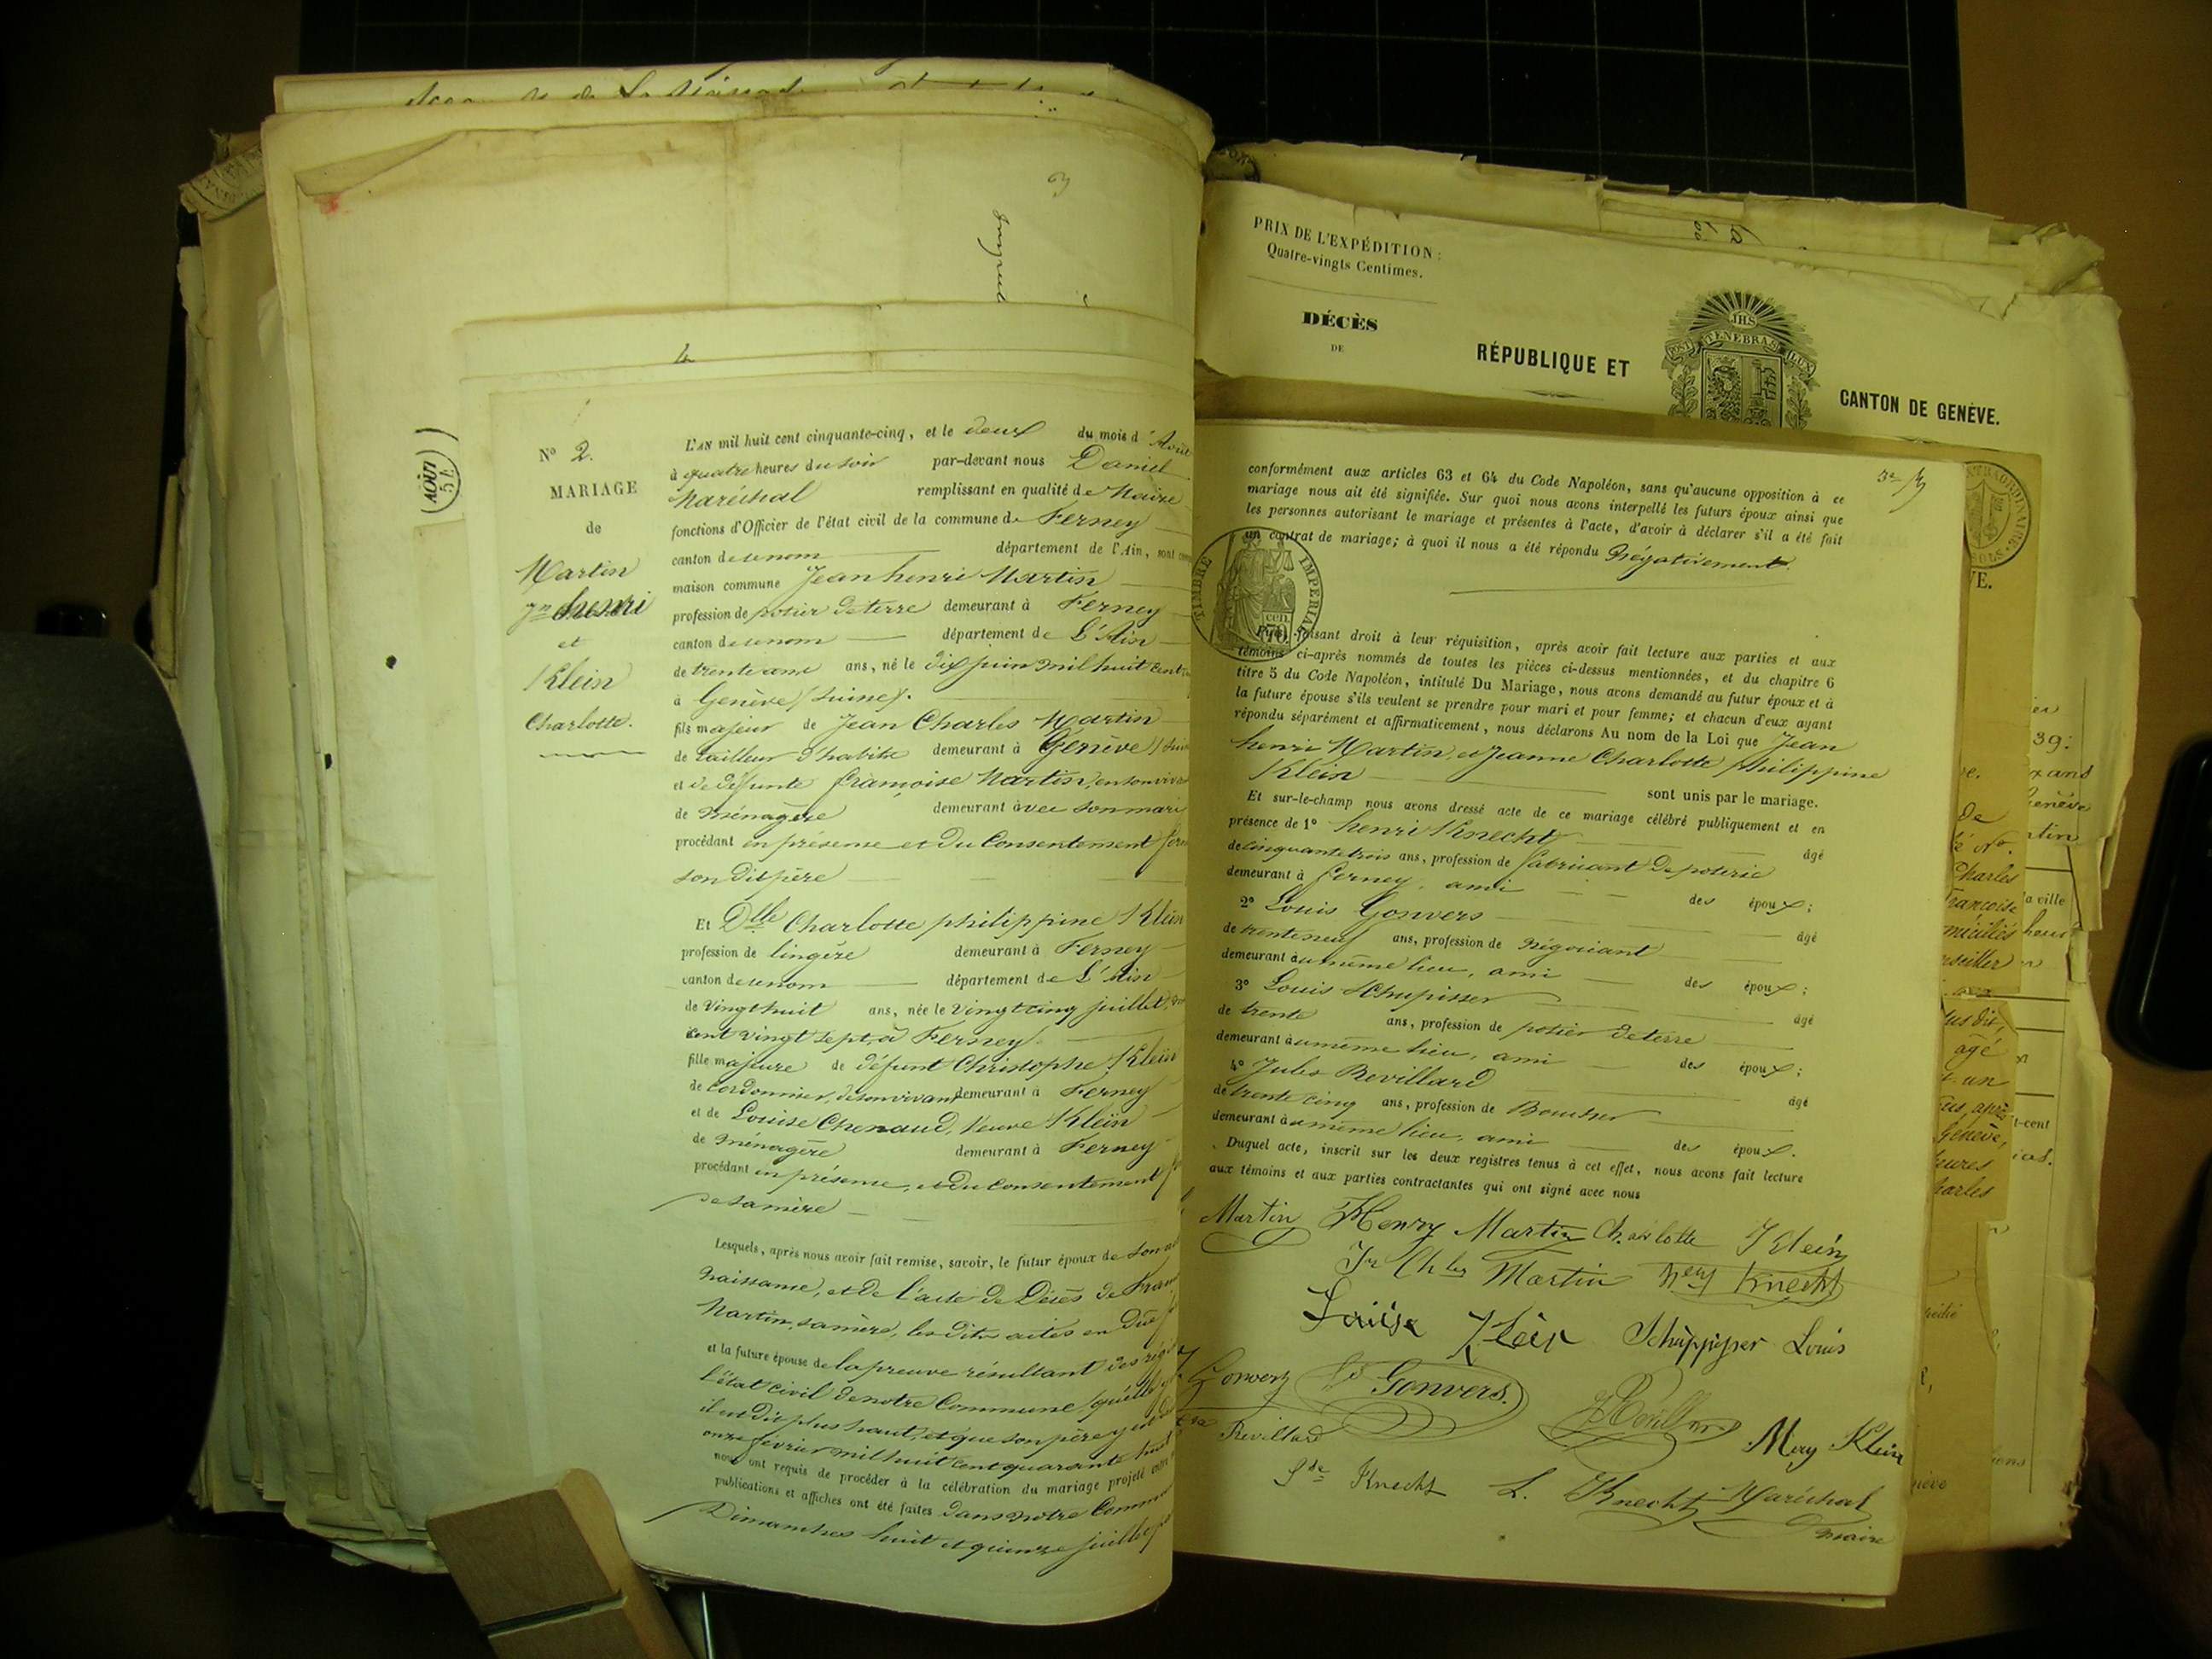 3
4
AOÛT
54
N° 2.
MARIAGE
de
Martin
Jn henri
et
Klein
Charlotte.
L'AN mil huit cent cinquante-cinq, et le deux du mois d'Août
à quatre heures du soir par-devant nous Daniel
Maréchal remplissant en qualité de Maire
fonctions d'Officier de l'état civil de la commune de Ferney
canton de ce nom département de l'Ain, sont
maison commune Jean henri Martin
profession de potier de terre demeurant à Ferney
canton de ce nom département de L'Ain
de trente ans ans, né le dix juin mil huit cent
à Genève (suisse).
fils majeur de Jean Charles Martin
de tailleur d'habits demeurant à Genève
et de défunte françoise Martin, en son viv
de Ménagère demeurant avec son mari
procédant en présence et du Consentement
son dit père
Et Dlle Charlotte philippine Klein
profession de lingère demeurant à Ferney
canton de ce nom département de L'Ain
de vingt huit ans, née le vingt cinq juillet,
cent vingt sept, à Ferney
fille majeure de défunt Christophe Klein
de Cordonnier, de son vivant demeurant à Ferney
et de Louise Chenaud, veuve Klein
de Ménagère demeurant à Ferney
procédant en présence, et du consentement
de sa mère
Lesquels, après nous avoir fait remise, savoir, le futur époux de son
Naissance, et de l'acte de Décès de
Martin, sa mère, les dits actes en due
et la future épouse de la preuve résultant des
l'état civil de notre Commune, qu'elle
il est dit plus haut, et que son père y est
onze février mil huit cent quarante huit
nous ont requis de procéder à la célébration du mariage projeté entre
publications et affiches ont été faites dans notre Commune
Dimanches huit et quinze juillet
PRIX DE L'EXPÉDITION :
Quatre-vingts Centimes.
DÉCÈS
DE
RÉPUBLIQUE ET
JHS
POST TENEBRAS LUX
CANTON DE GENÈVE.
conformément aux articles 63 et 64 du Code Napoléon, sans qu'aucune opposition à ce
mariage nous ait été signifiée. Sur quoi nous avons interpellé les futurs époux ainsi que
les personnes autorisant le mariage et présentes à l'acte, d'avoir à déclarer s'il a été fait
un contrat de mariage; à quoi il nous a été répondu Négativement.
TIMBRE IMPERIAL
70 cen.
faisant droit à leur réquisition, après avoir fait lecture aux parties et aux
témoins ci-après nommés de toutes les pièces ci-dessus mentionnées, et du chapitre 6
titre 5 du Code Napoléon, intitulé Du Mariage, nous avons demandé au futur époux et à
la future épouse s'ils veulent se prendre pour mari et pour femme; et chacun d'eux ayant
répondu séparément et affirmativement, nous déclarons Au nom de la Loi que Jean
henri Martin, et Jeanne Charlotte philippine
Klein sont unis par le mariage.
Et sur-le-champ nous avons dressé acte de ce mariage célébré publiquement et en
présence de 1° henri Knecht âgé
de cinquante trois ans, profession de fabricant de poterie
demeurant à ferney, ami des époux;
2° Louis Gonvers âgé
de trente neuf ans, profession de Négociant
demeurant au même lieu, ami des époux;
3° Louis Schupisser âgé
de trente ans, profession de potier de terre
demeurant au même lieu, ami des époux;
4° Jules Revillard âgé
de trente cinq ans, profession de Boucher
demeurant au même lieu, ami des époux.
Duquel acte, inscrit sur les deux registres tenus à cet effet, nous avons fait lecture
aux témoins et aux parties contractantes qui ont signé avec nous
Martin Henry Martin Charlotte Klein
Jn Chles Martin Hey Knecht
Louise Klein Schuppisser Louis
Gonvers Ls Gonvers.
Revillard Mery Klein
Knecht L. Knecht Maréchal
maire